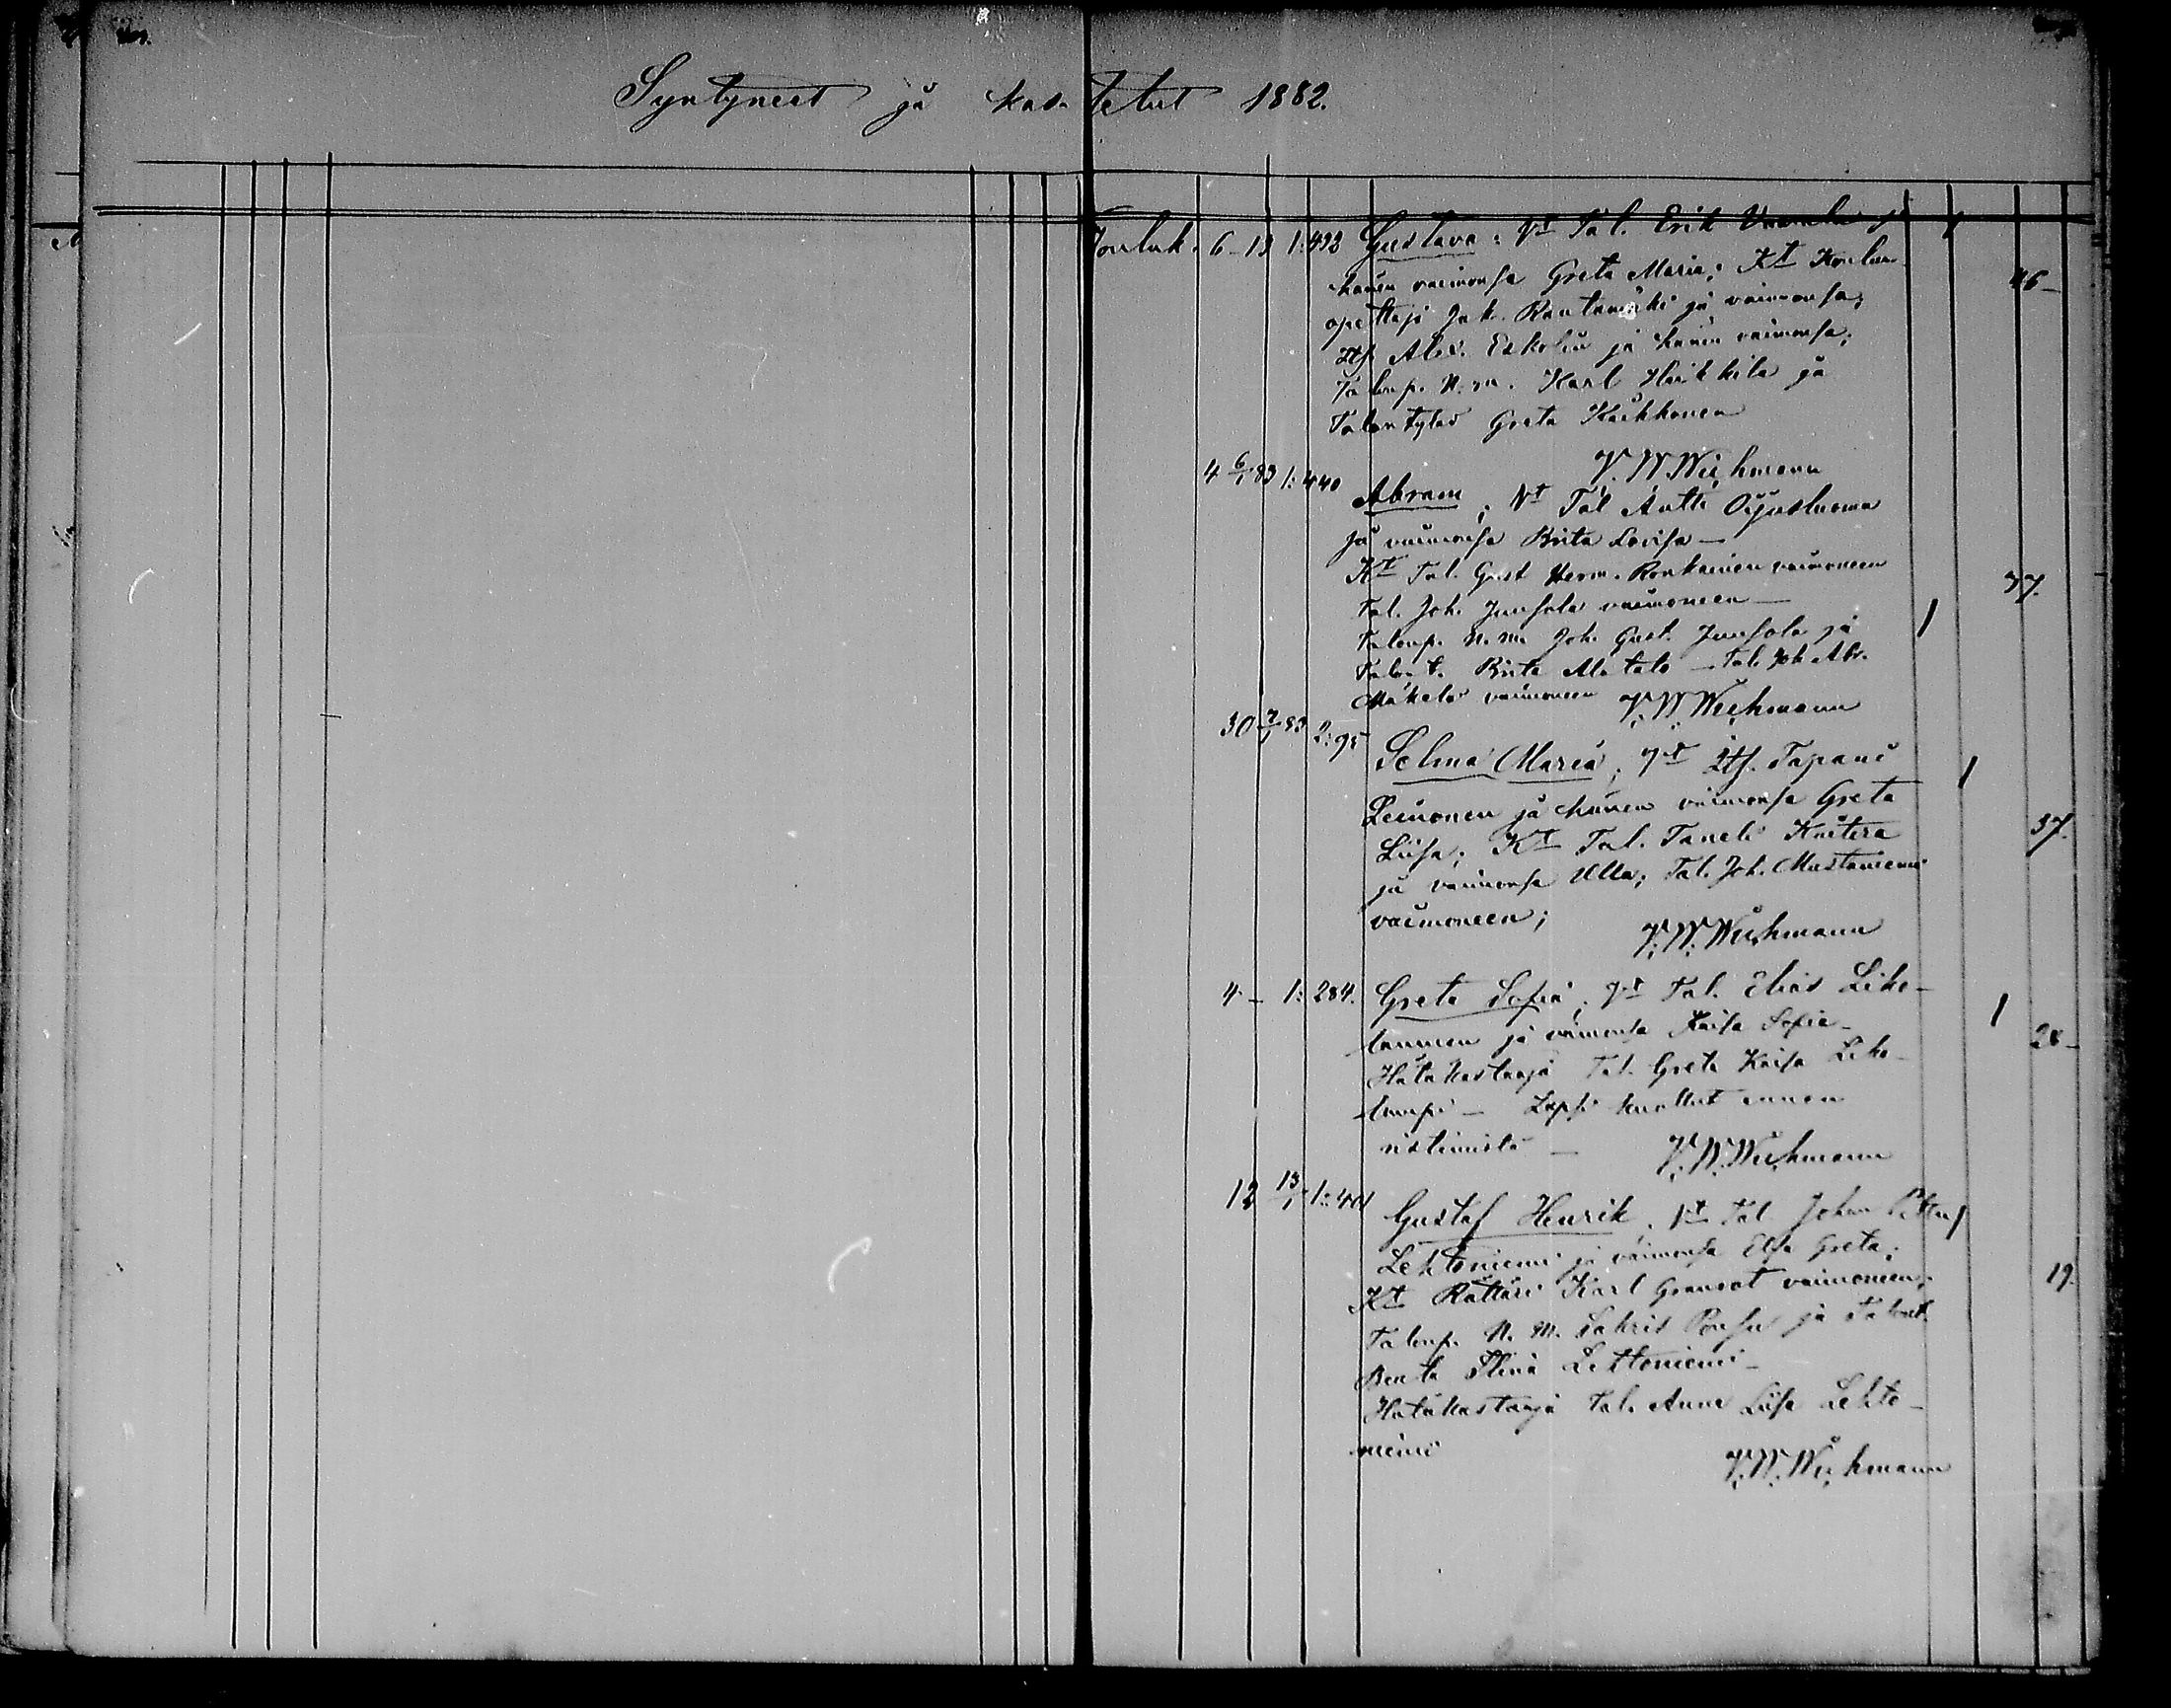 Syntyneet ja kastetut 1882.
Jouluk. 6 - 13 1:492 Gustava: Vt Tal. Erik ja
hänen vaimonsa Greta Maria; Kt Koulun
46 -
opettaja Jak. Rautamäki ja vaimonsa;
Its. Alex. Eskolin ja hänen vaimonsa;
Talonp. N. m. Karl Heikkilä ja
Talon tytär Greta Kaikkonen
V. W. Wichmann
4 6/1 83 1:440 Abram; Vt Tal Antti
ja vaimonsa Brita Lovisa -
Kt Tal. Gust Herm. Ronkainen vaimoneen
77.
Tal. Joh. Junsola vaimoneen -
Talonp. N. m. Joh. Gust. Junsola ja
Talon t. Brita Alatalo - Tal. Joh. Abr.
Mäkelä vaimoneen V. W. Wichmann
30 7/1 83 2:95 Selma Maria; Vt Its. Tapani
Leinonen ja hänen vaimonsa Greta
37.
Liisa; Kt Tal. Taneli Kaitera
ja vaimonsa Ulla; Tal. Joh. Mustaniemi
vaimoneen; V. W. Wichmann
4 - 1:284. Greta Sofia; Vt Tal. Elias
ja vaimonsa Kaisa Sofia -
28 -
Hätäkastaaja Tal. Greta Kaisa
- Lapsi kuollut ennen
ristimistä - V. W. Wichmann
12 13/1 1:401 Gustaf Henrik. Vt Tal. Johan
Lehtoniemi ja vaimonsa Elsa Greta;
19.
Kt Räätäri Karl Granrot vaimoneen;
Talonp. N. m. Sakris ja Talont.
Stina Lehtoniemi -
Hätäkastaaja Tal. Anna Liisa Lehto-
niemi
V. W. Wichmann